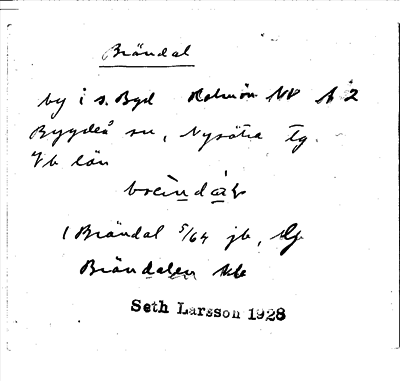 Brändal
by i s. Byd Holmön NV A 2
Bygdeå sn, Nysätra tg.
Vb län
1 Brändal 5/64 jb,
Brändalen
Seth Larsson 1928